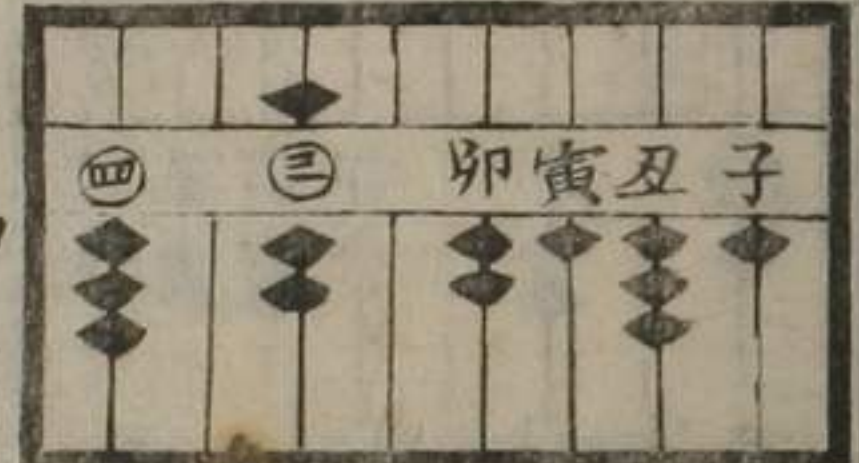 ㊃ ㊂ 卯 寅 丑 子